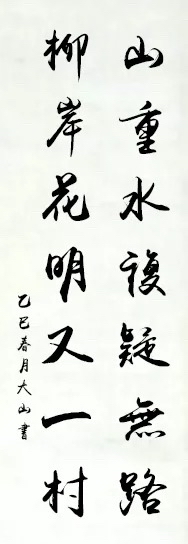 山重水複疑無路
柳岸花明又一村
乙巳春月大山書